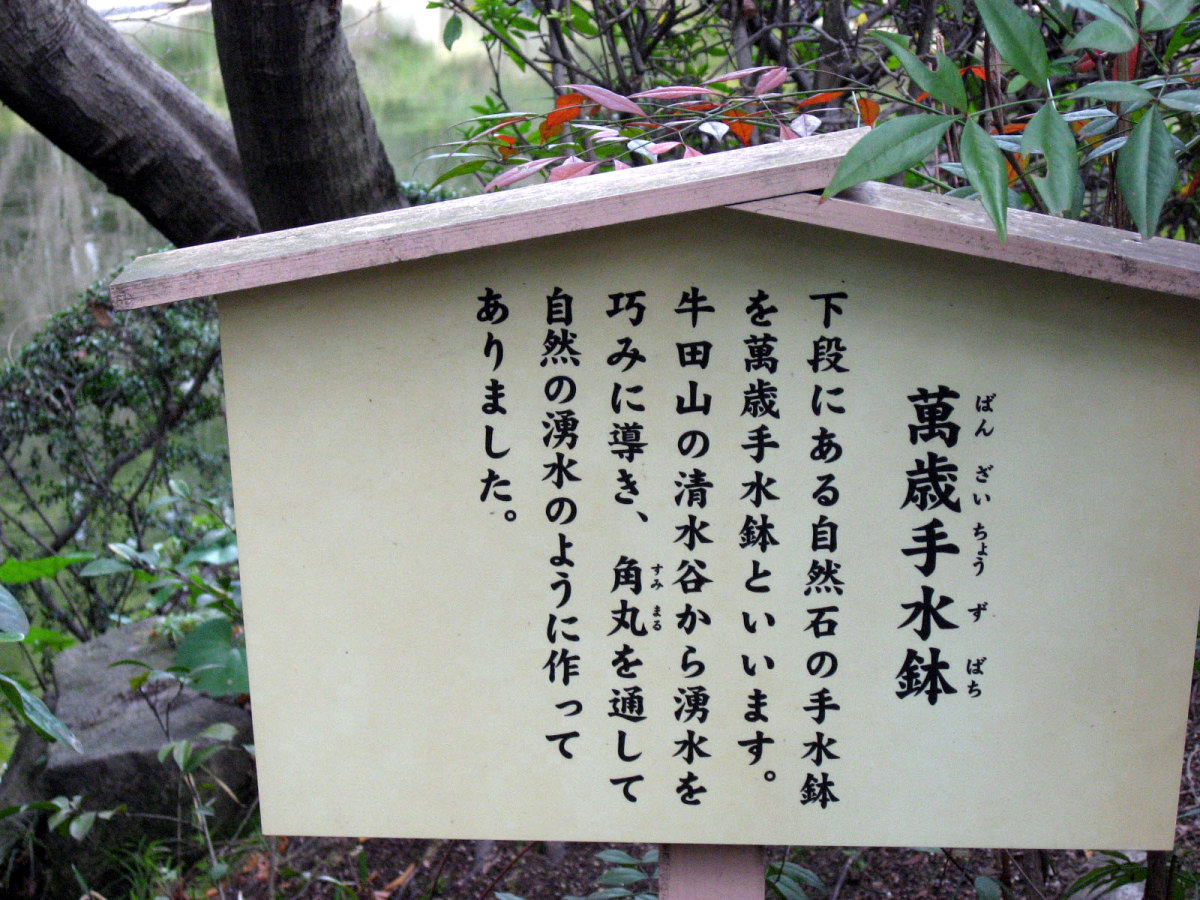 萬歳手水鉢
ばんざいちょうずばち
下段にある自然石の手水鉢
を萬歳手水鉢といいます。
牛田山の清水谷から湧水を
巧みに導き、角丸を通して
すみまる
自然の湧水のように作って
ありました。